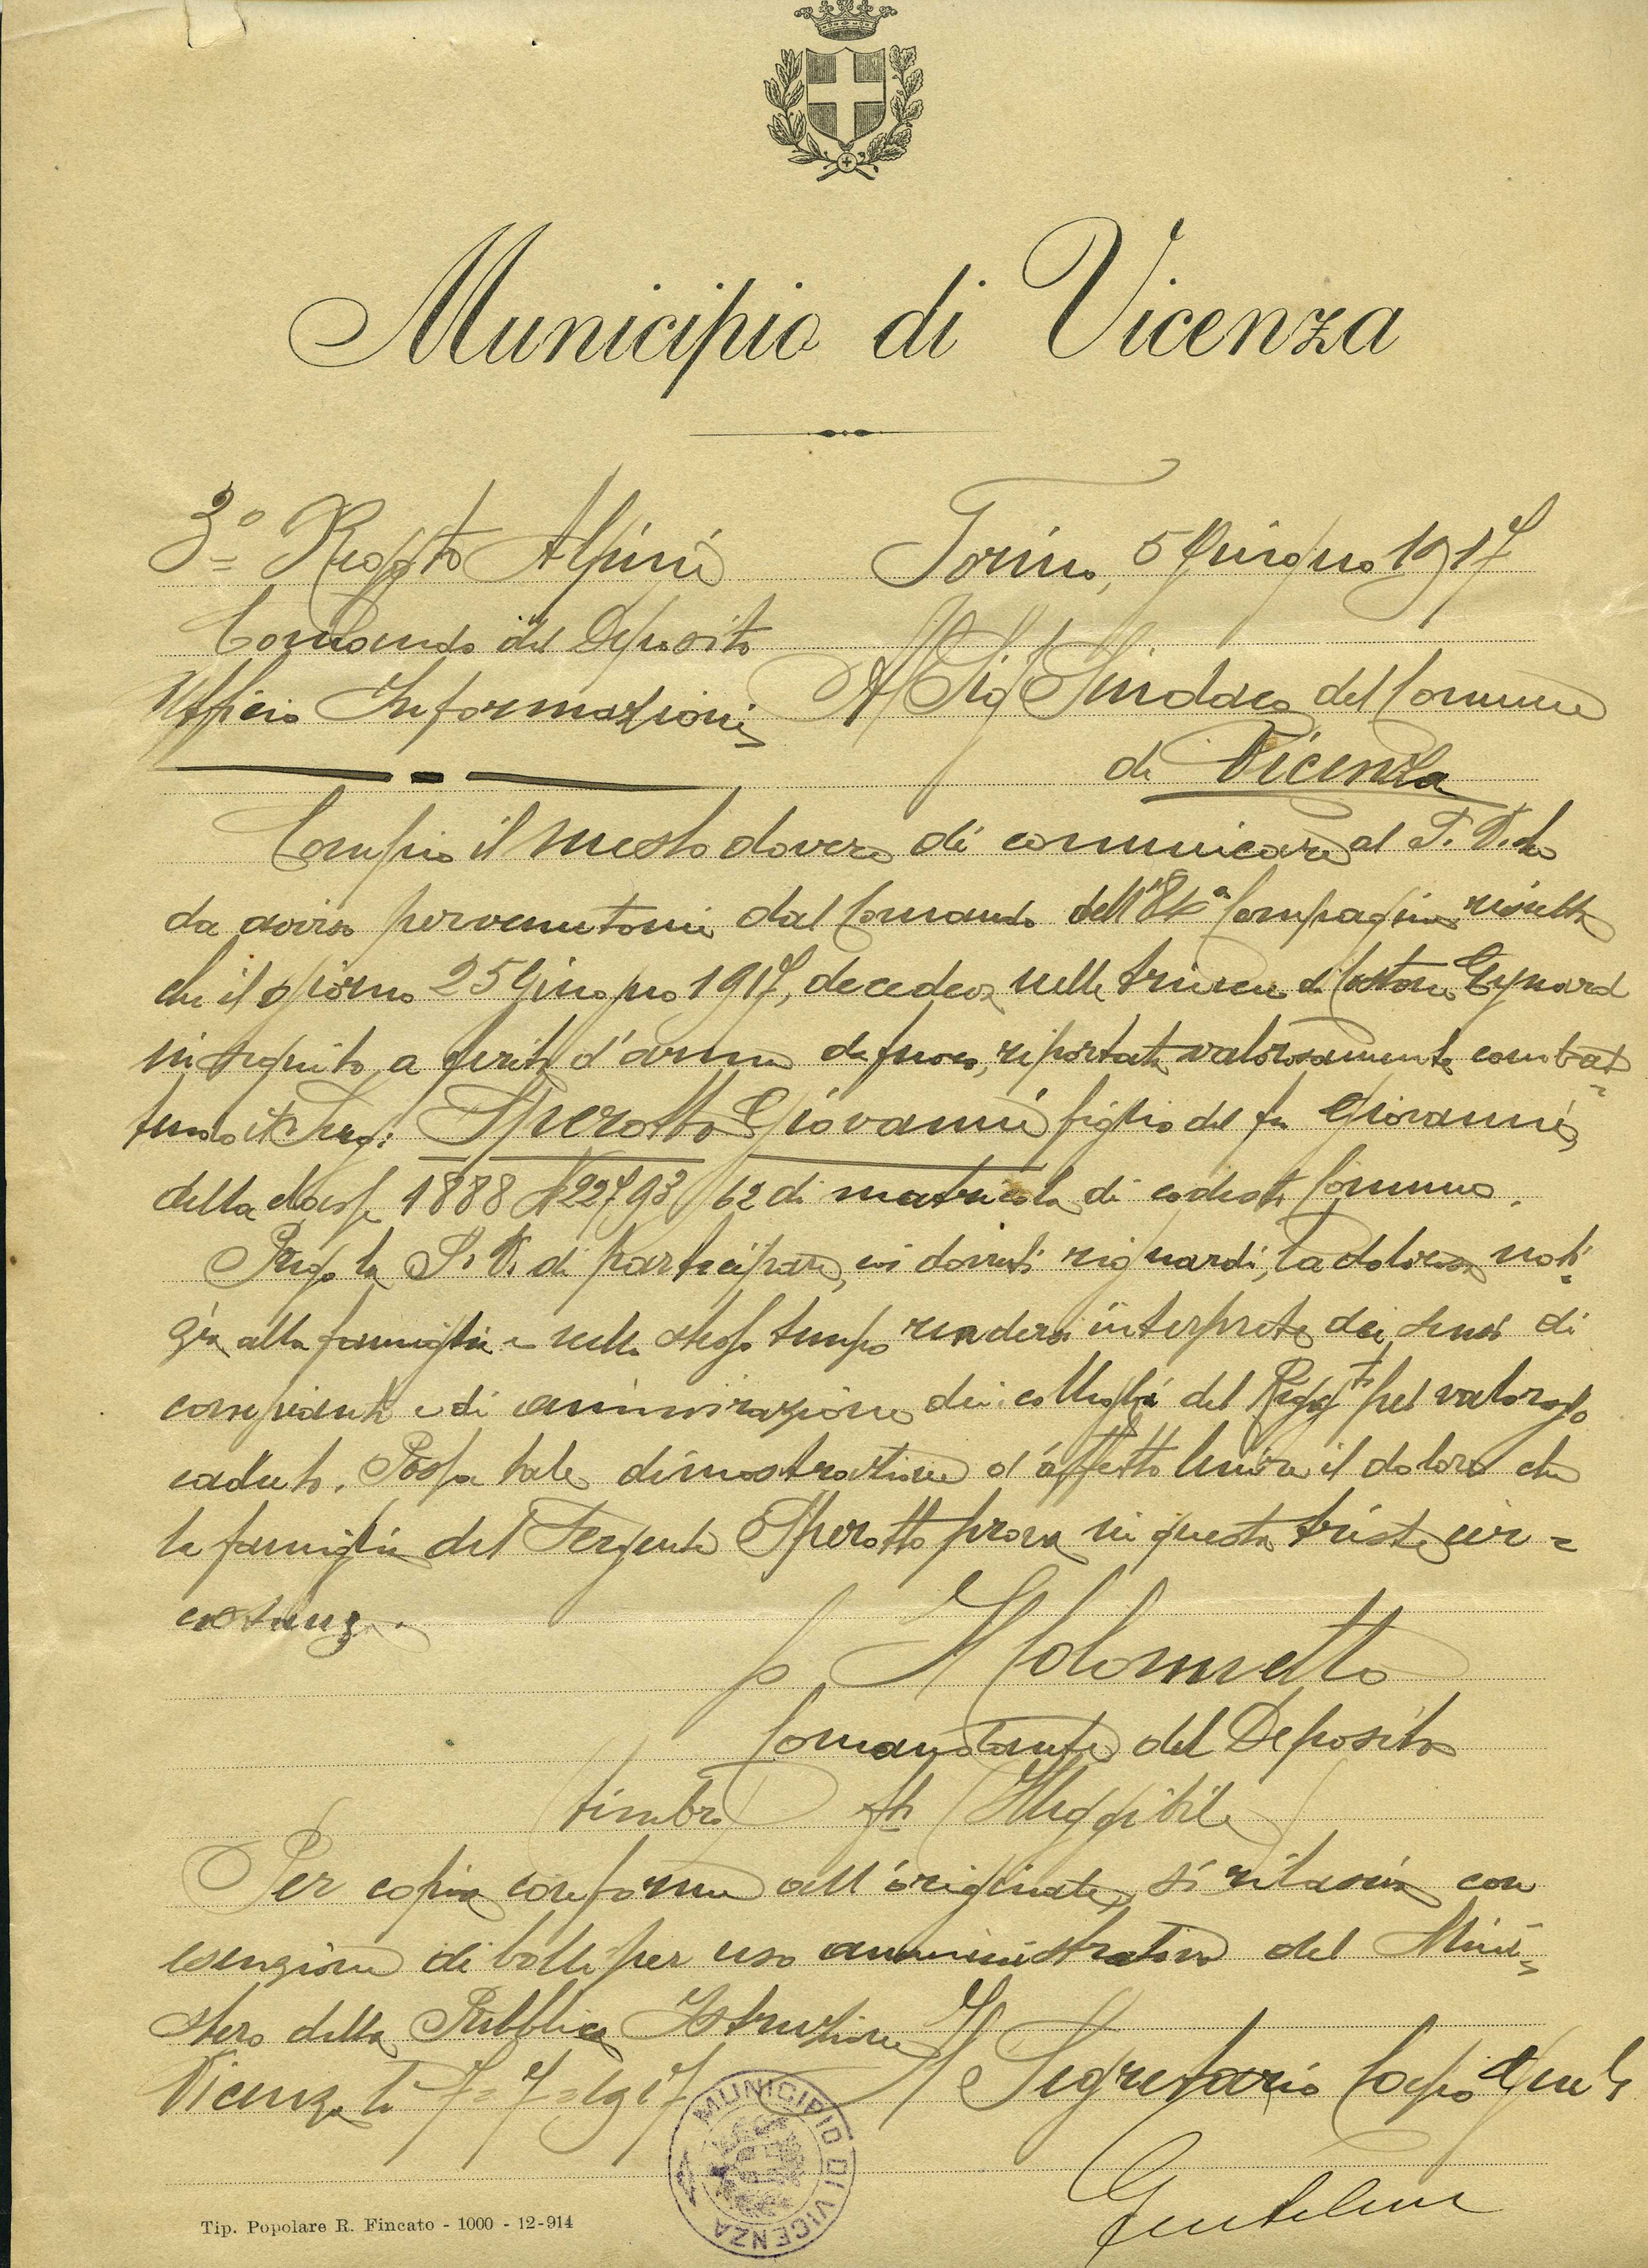 Municipio di Vicenza
3° Reggto Alpini
Torino, 5 Giugno 1917
Comando del Deposito
Ufficio Informazioni
Al Sig. Sindaco del Comune
di Vicenza
Compio il mesto dovere di comunicare al S. V. che
da avviso pervenutomi dal Comando dell' 84a Compagnia risulta
che il giorno 25 Giugno 1917, decedeva nelle trincee di
in seguito a ferite d'arma da fuoco, riportate valorosamente combat=
tendo il Serg: Sperotto Giovanni figlio del fu Giovanni
della classe 1888 N 22793/62 di matricola di codesto Comune.
Prego la S. V. di partecipare, coi dovuti riguardi, la dolorosa noti=
zia alla famiglia e nello stesso tempo rendersi interprete dei sensi di
e di ammirazione dei colleghi del Reggto pel valoroso
caduto. Possa tale dimostrazione d'affetto lenire il dolore che
la famiglia del Sergente Sperotto prova in questa triste cir=
costanza.
p Il Colonnello
Comandante del Deposito
timbro fto Illeggibile
Per copia conforme all'originale, si rilascia con
esenzione di bollo per uso amministrativo del Mini=
stero della Pubblica Istruzione
Vicenza li 7=7=1917
Il Segretario Capo
MUNICIPIO DI VICENZA
Tip. Popolare R. Fincato - 1000 - 12-914